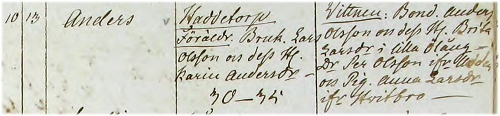 10 13 Anders
Haddetorp
Föräldr. Bruk. Lars
Olsson os dess H.
Karin Andersdr
30-35
Vittnen: Bond. Anders
Olsson os dess H. Brita
Larsdr i lilla
Dr Per Olsson ifr
os Pig. Anna Larsdr
ifr Hvitbro